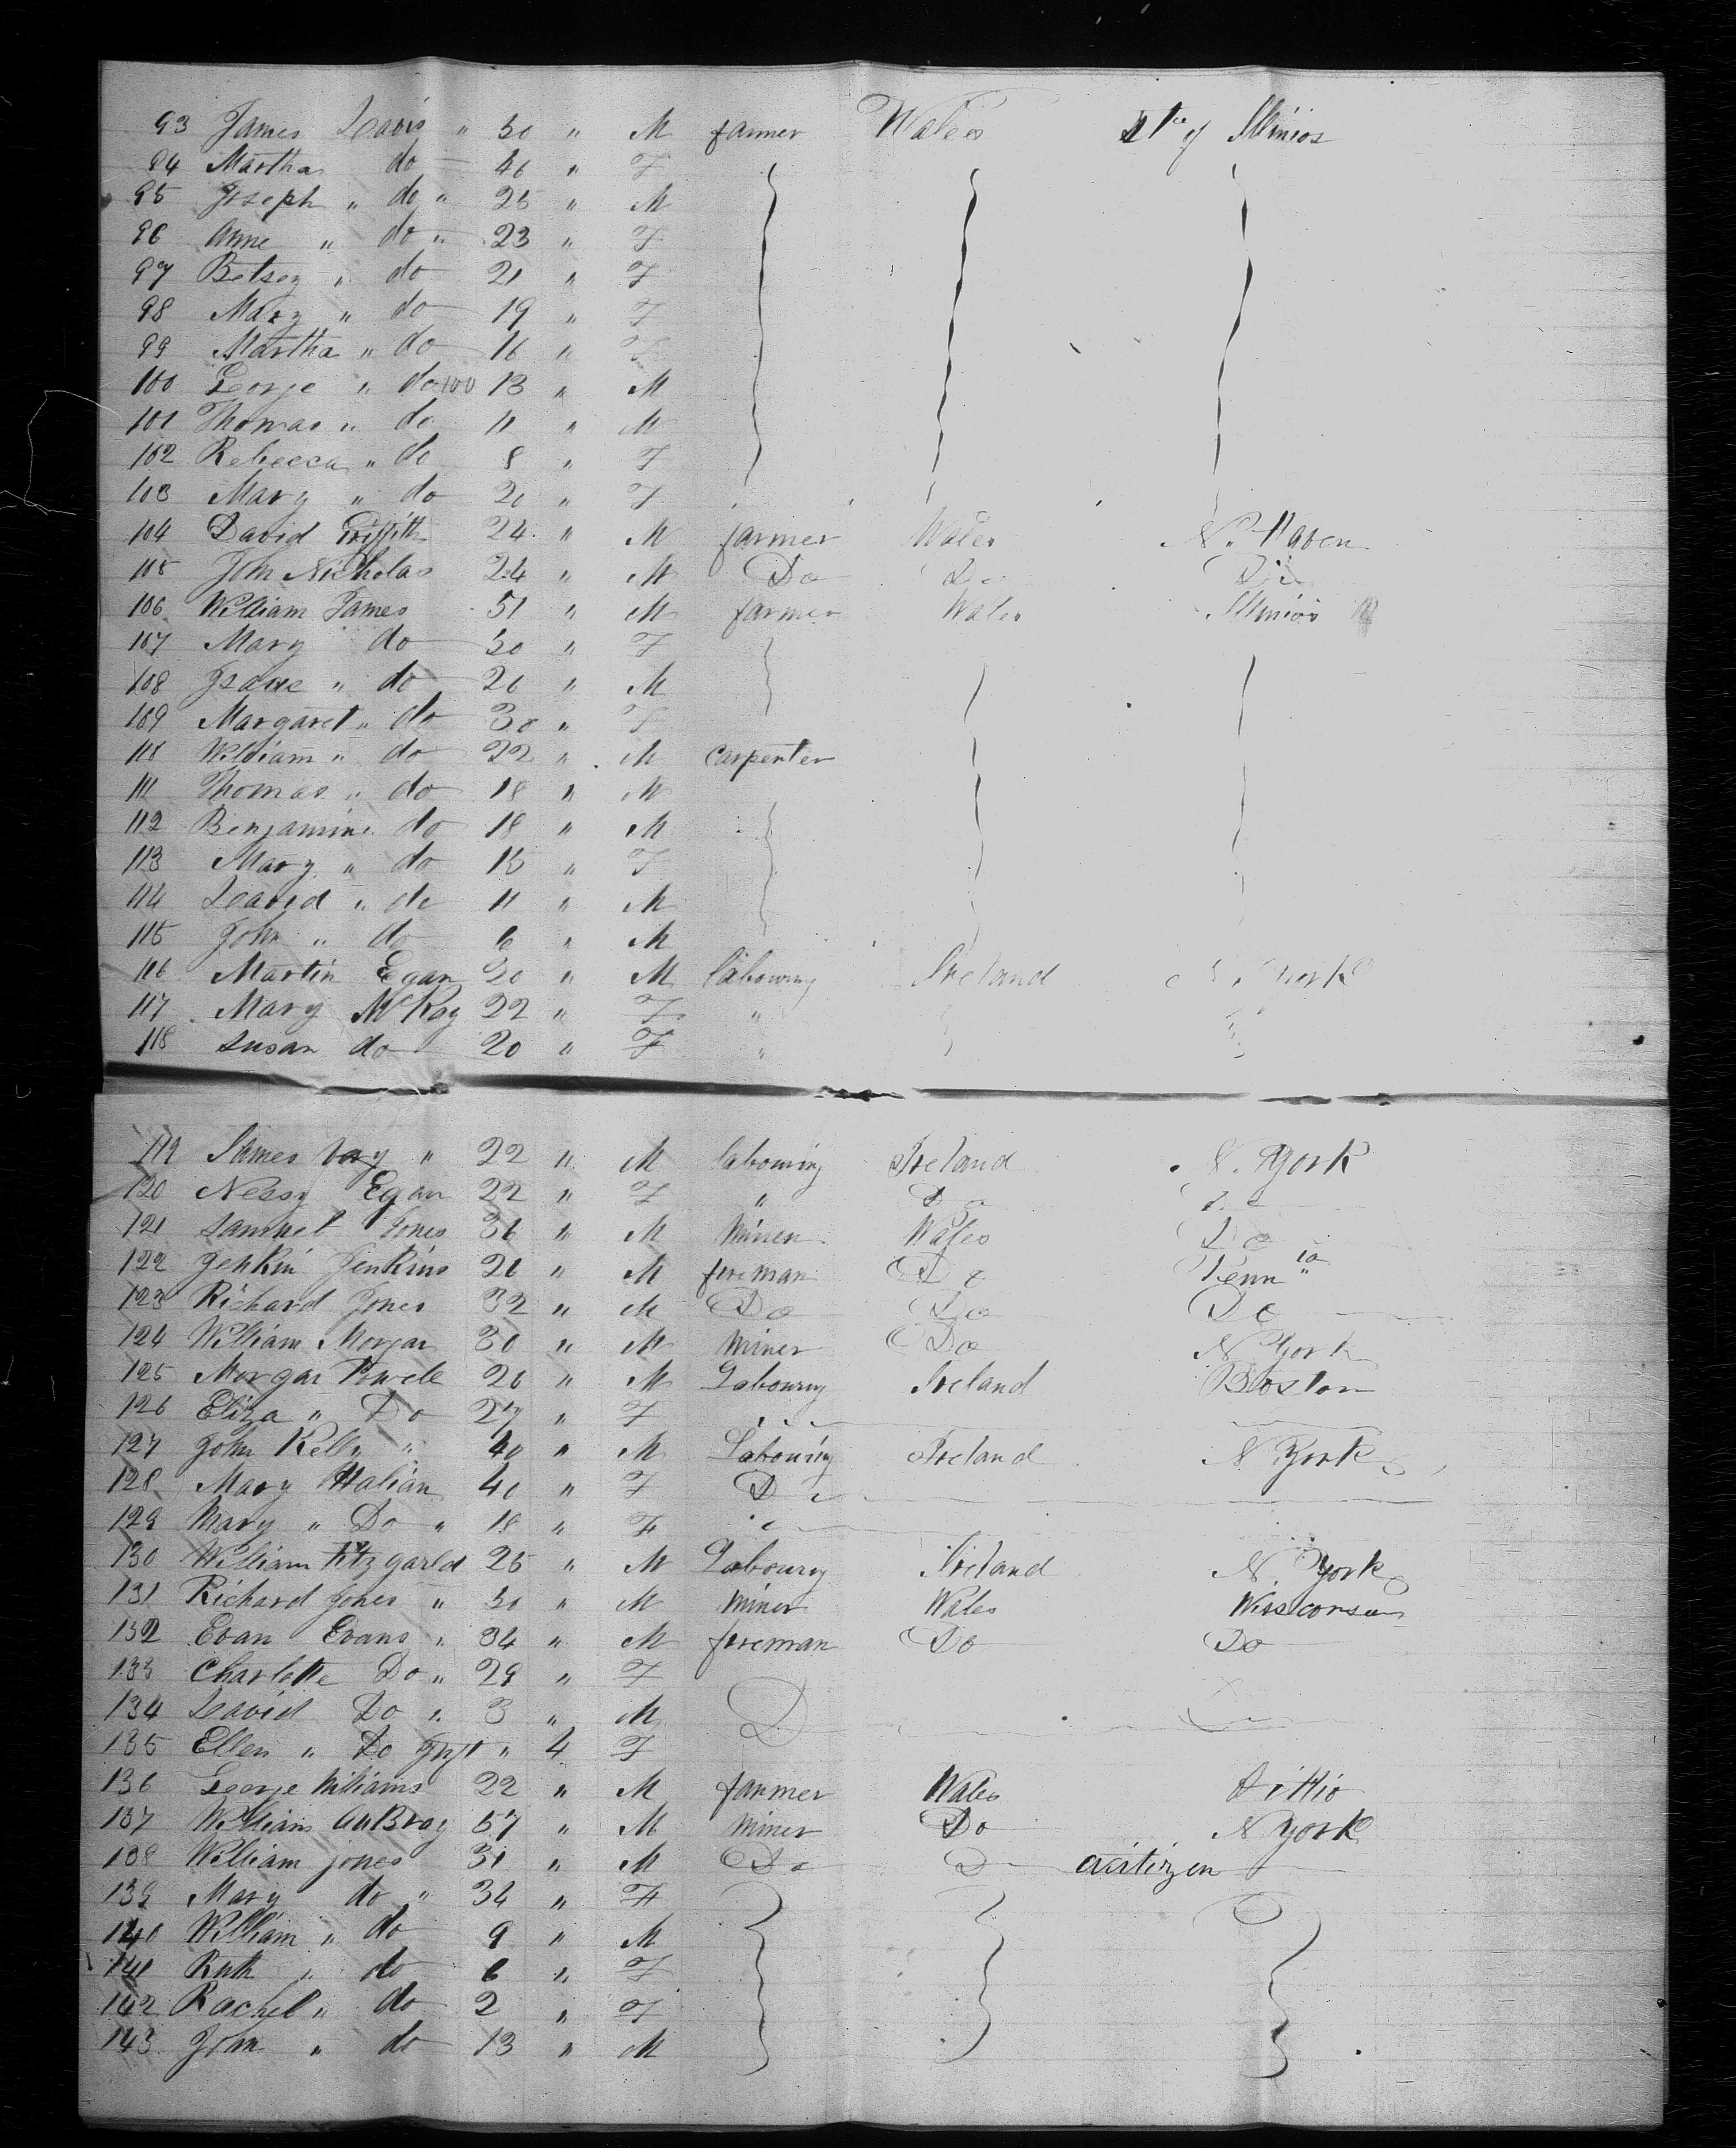 93 James Davis " 50 " M farmer Wales Ste of Illinios
94 Martha do 46 " F
95 Joseph " do " 25 " M
96 Anne " do " 23 " F
97 Betsey " do 21 " F
98 Mary " do 19 " F
99 Martha " do 16 " F
100 George " do 100 13 " M
101 Thomas " do 11 " M
102 Rebecca " do 8 " F
103 Mary " do 20 " F
104 David Griffith 24 " M farmer Wales N. Haven
105 John Nicholas 24 " M Do Do Do
106 William James 51 " M farmer Wales Illinios
107 Mary do 50 " F
108 Isaac " do 26 " M
109 Margaret " do 30 " F
110 William " do 22 " M carpenter
111 Thomas " do 18 " M
112 Benjamine do 18 " M
113 Mary " do 15 " F
114 David " do 11 " M
115 John " do 6 " M
116 Martin Egan 30 " M labouring Ireland N. York
117 Mary McKay 22 " F "
118 Susan do 20 " F "
119 James " 22 " M labouring Ireland N. York
120 Nessy Egan 22 " F " Do Do
121 Samuel Jones 36 " M Miner Wales Do
122 Jenkin Jenkins 26 " M fireman Do Penn ia
123 Richard Jones 32 " M Do Do Do
124 William Morgan 30 " M Miner Do N York
125 Morgan Powell 26 " M Labouring Ireland Boston
126 Eliza " Do 27 " F
127 John Kelly " 40 " M Labouring Ireland N York
128 Mary Halian 40 " F Do
129 Mary " Do " 18 " F
130 William Fitzgarld 25 " M Labouring Ireland N. York
131 Richard Jones " 30 " M Miner Wales Wissconsen
132 Evan Evans " 34 " M fireman Do Do
133 Charlotte Do " 29 " F
134 David Do " 3 " M
135 Ellen " Do Inft " 4 F
136 George Williams 22 " M farmer Wales dittio
137 William AuBray 57 " M Miner Do N York
138 William Jones 31 " M Do D acitizen
139 Mary do " 34 " F
140 William " do 9 " M
141 Ruth " do 6 " F
142 Rachel " do 2 " F
143 John " do 13 " M